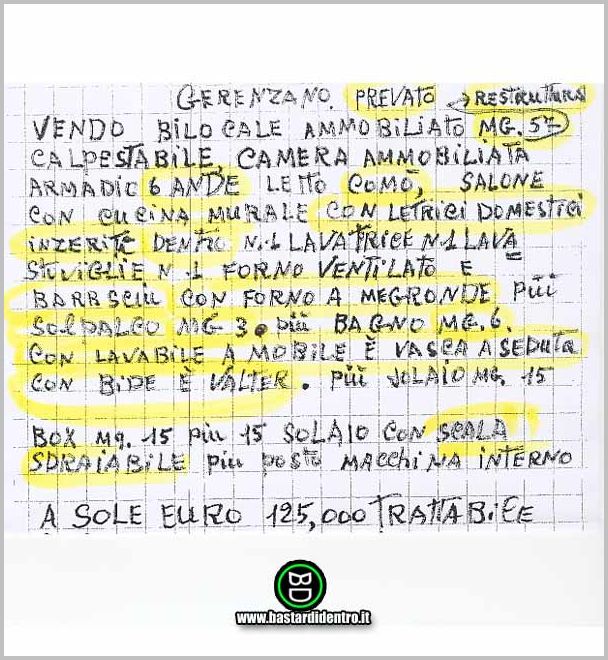 GERENZANO. PREVATO → RESTRUTURA
VENDO BILOCALE AMMOBILIATO MG. 57
CALPESTABILE, CAMERA AMMOBILIATA
ARMADIO 6 ANDE LETTO COMÒ, SALONE
CON CUCINA MURALE CON LETRICI DOMESTICI
INZERITE DENTRO N.1 LAVATRICE N.1 LAVA
STUVIGLIE N.1 FORNO VENTILATO E
BARBSCIU CON FORNO A MEGRONDE PIÙ
SOLPALCO MG 3. PIÙ BAGNO MG. 6.
CON LAVABILE A MOBILE È VASCA A SEDUTA
CON BIDE È VALTER. PIÙ SOLAIO MG. 15
BOX MQ. 15 PIU 15 SOLAIO CON SCALA
SDRAIABILE PIU POSTO MACCHINA INTERNO
A SOLE EURO 125,000 TRATTABILE
www.bastardidentro.it